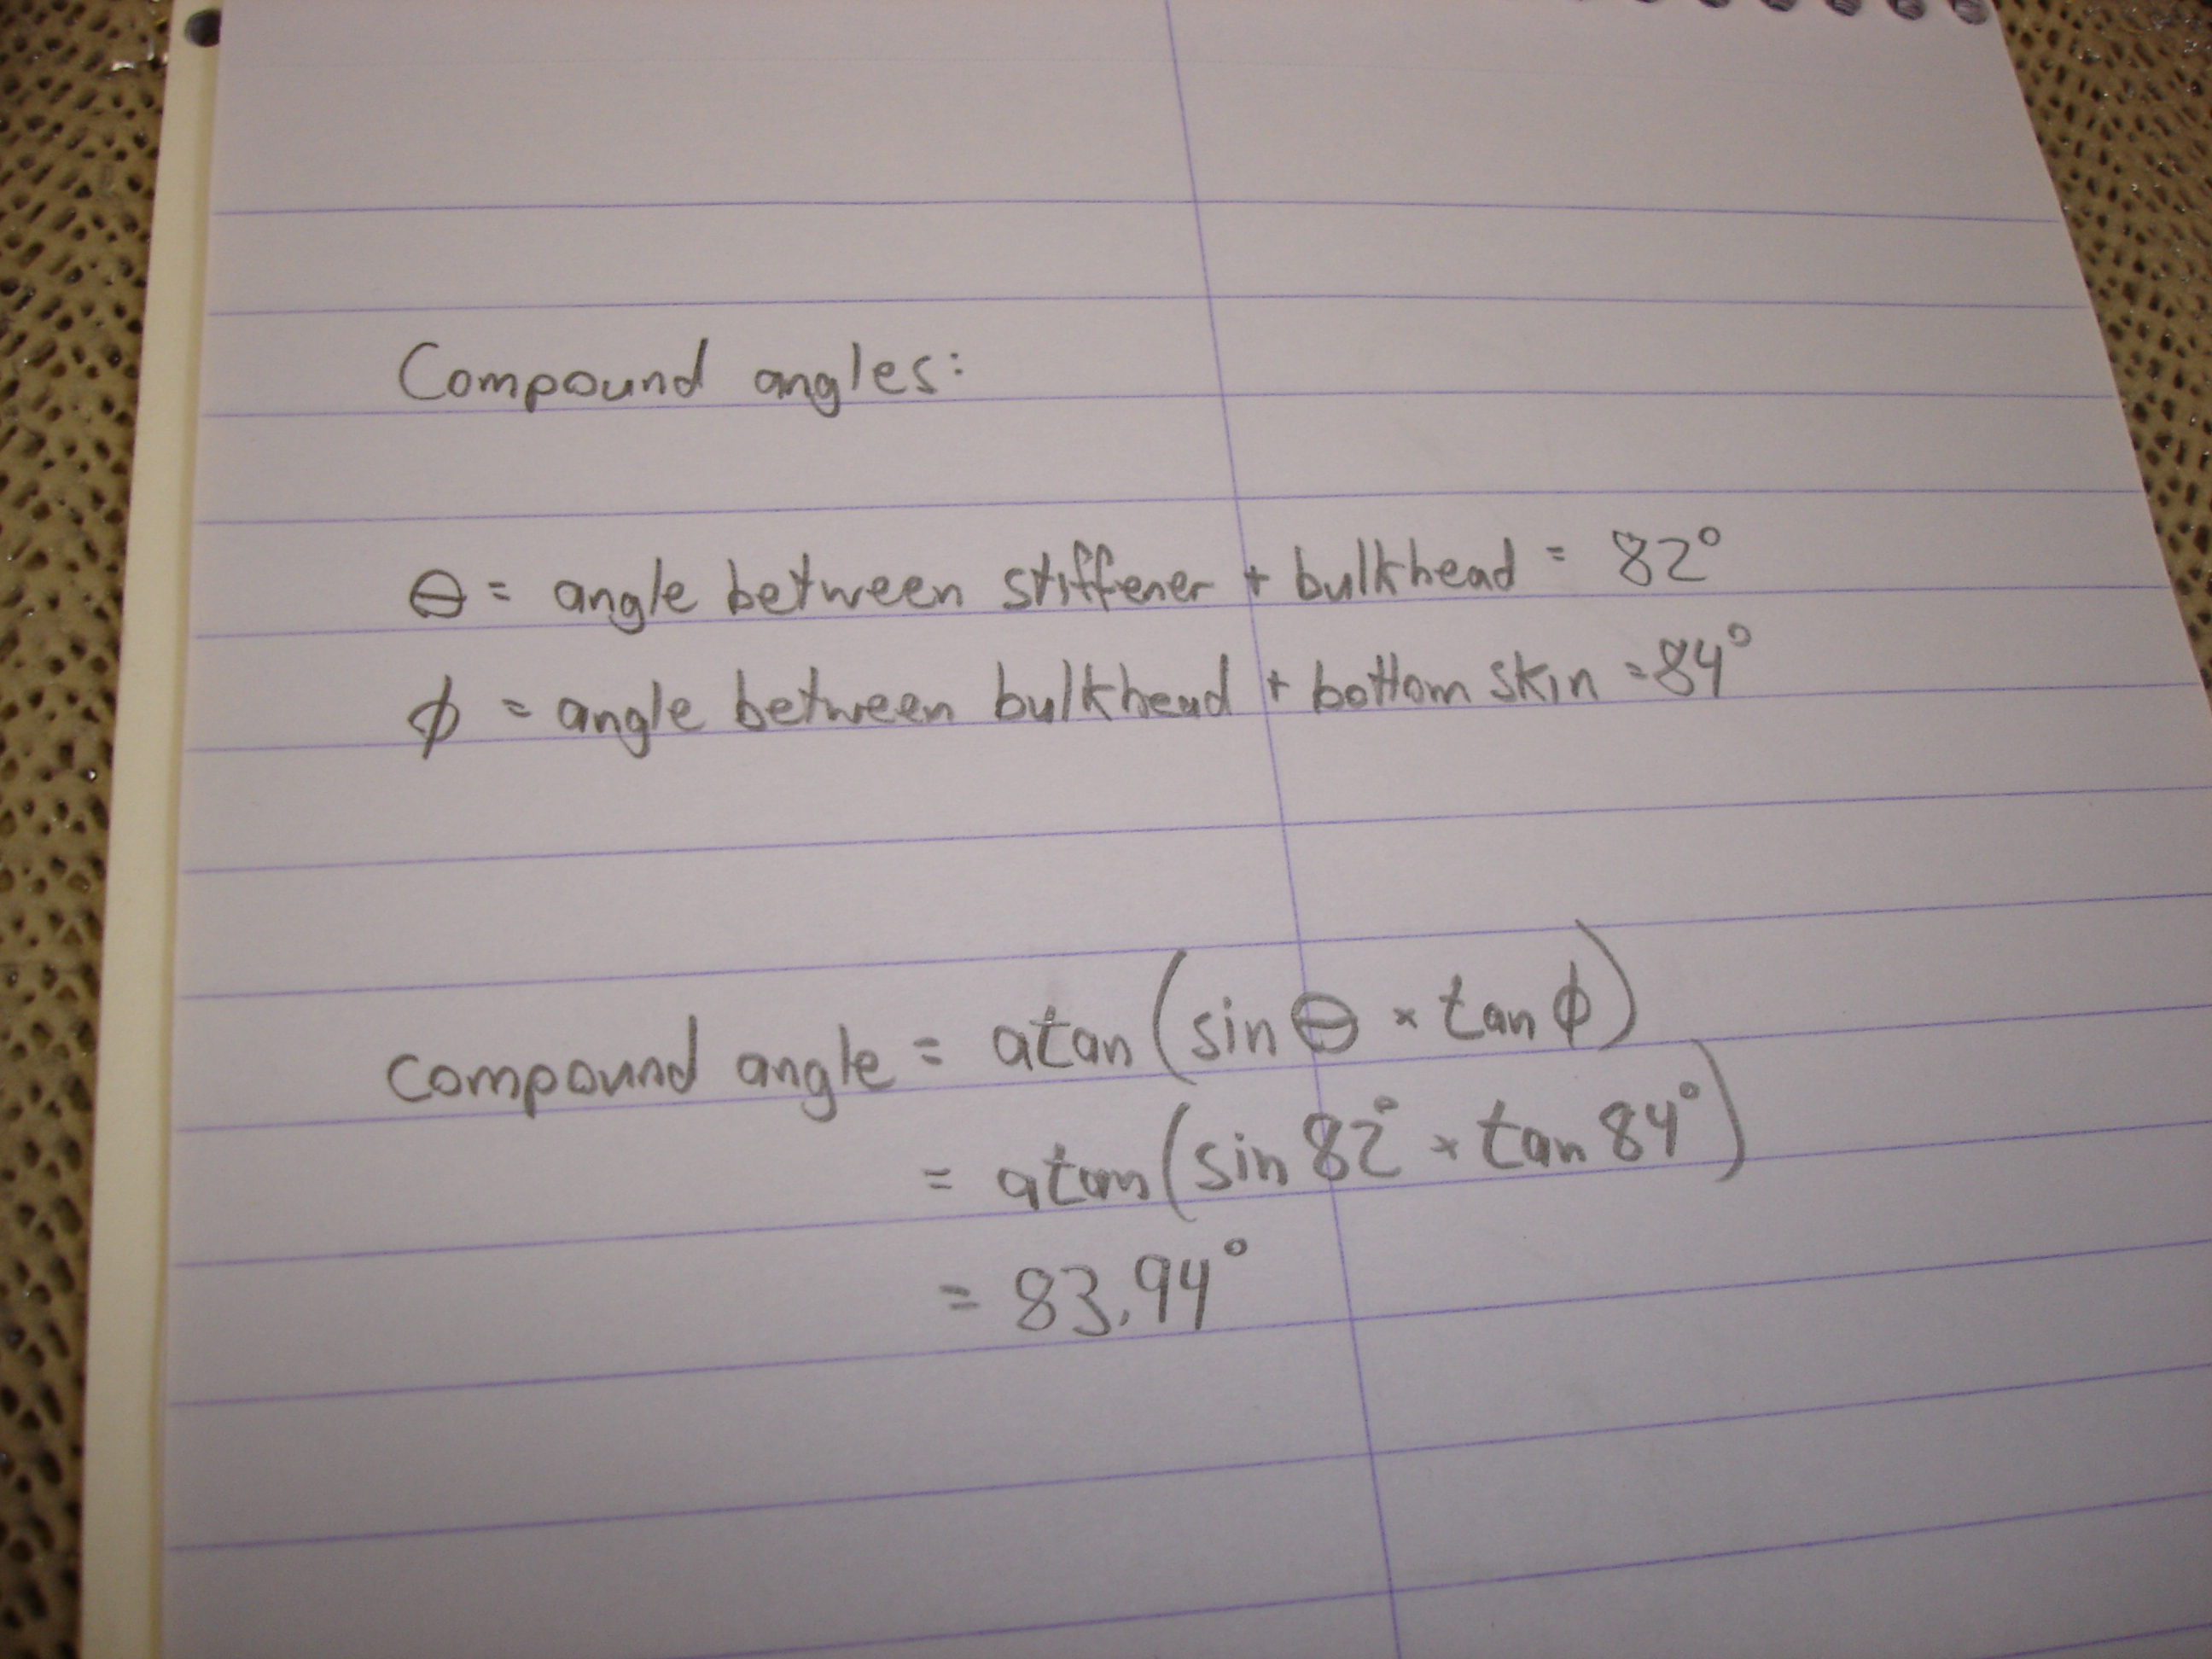 Compound angles:
θ = angle between stiffener + bulkhead = 82°
φ = angle between bulkhead + bottom skin = 84°
compound angle = atan (sin θ × tan φ)
= atan (sin 82° × tan 84°)
= 83.94°